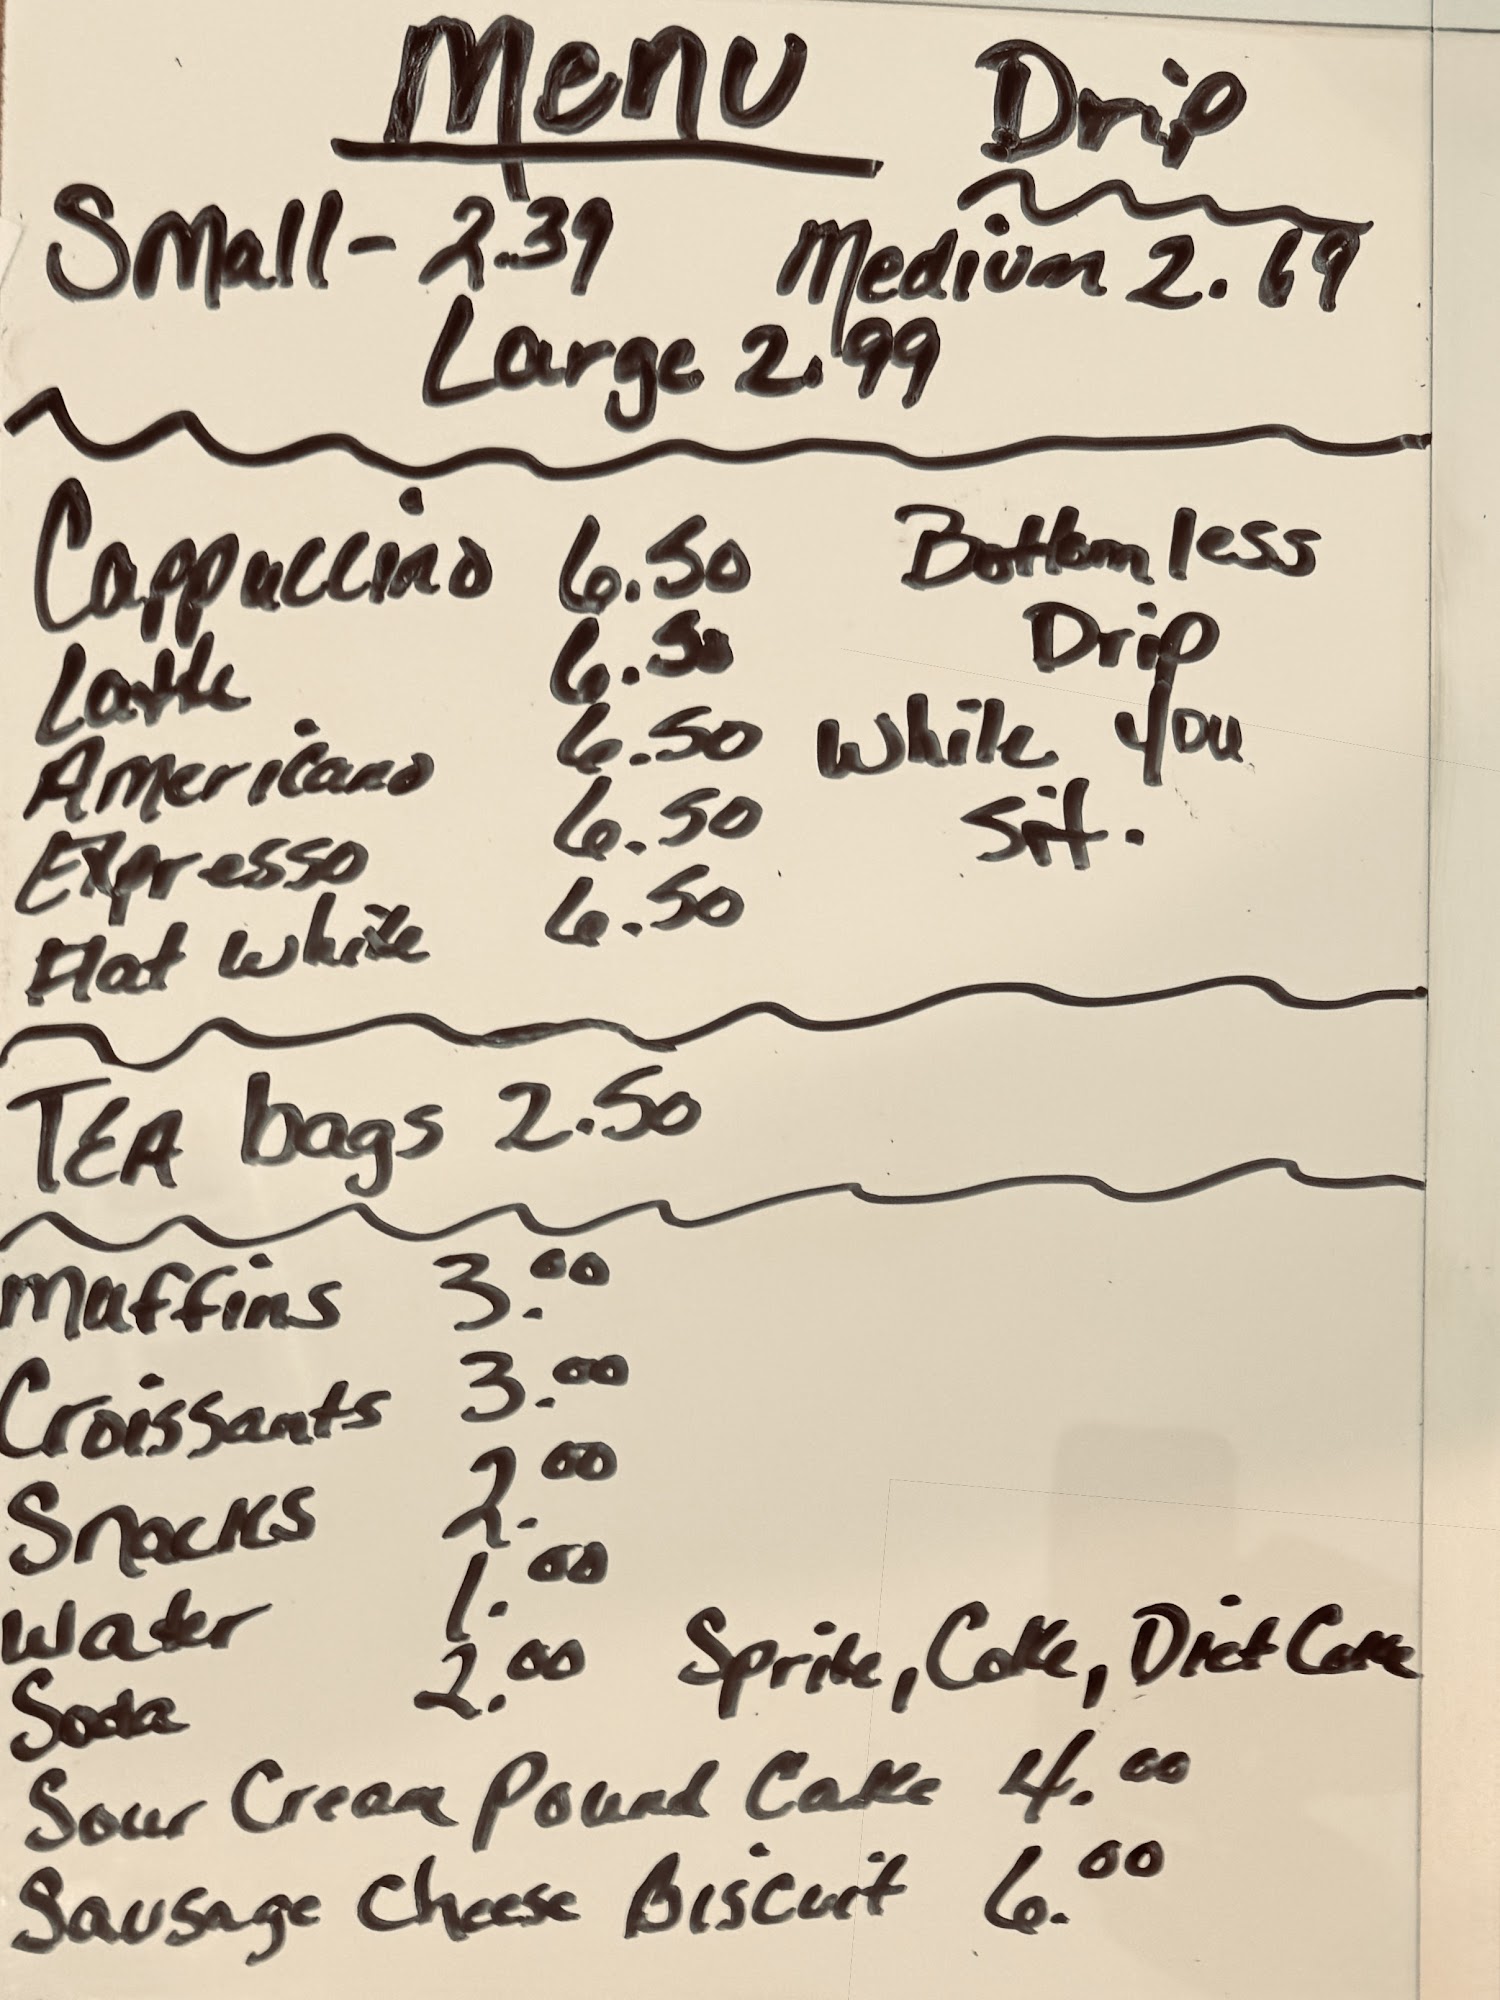 Menu Drip
Small - 2.39 Medium 2.69
Large 2.99
Cappuccino 6.50
Latte 6.50
Americano 6.50
Expresso 6.50
Flat White 6.50
Bottomless
Drip
While you
sit.
TEA bags 2.50
Muffins 3.00
Croissants 3.00
Snacks 2.00
Water 1.00
Soda 2.00 Sprite, Coke, Diet Coke
Sour Cream Pound Cake 4.00
Sausage Cheese Biscuit 6.00